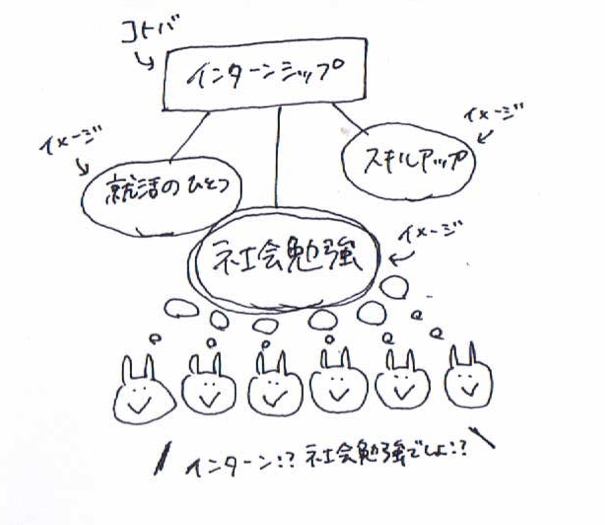 コトバ
インターンシップ
イメージ
就活のひとつ
イメージ
スキルアップ
イメージ
社会勉強
インターン!? 社会勉強でしょ!?